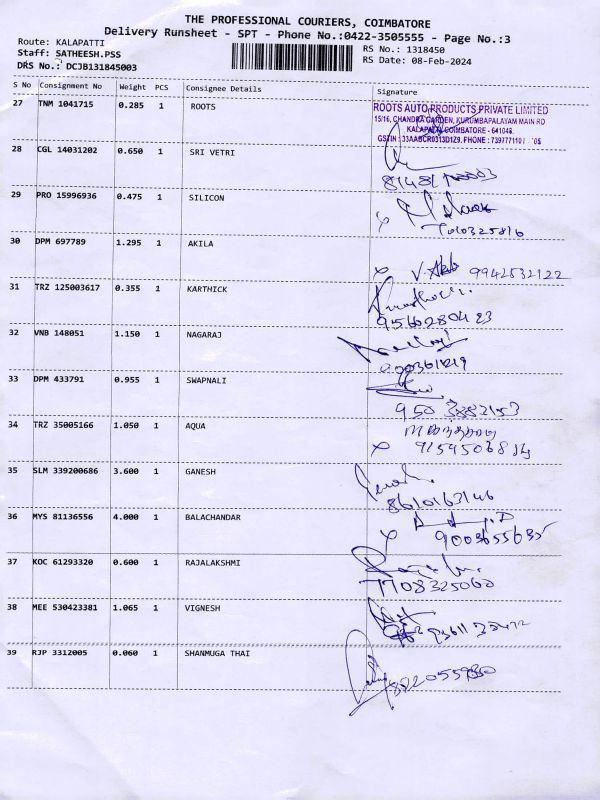 THE PROFESSIONAL COURIERS, COIMBATORE
Delivery Runsheet - SPT - Phone No.:0422-3505555 - Page No.:3
Route: KALAPATTI
RS No.: 1318450
Staff: SATHEESH.PSS
RS Date: 08-Feb-2024
DRS No.: DCJB131845003
S No Consignment No Weight PCS Consignee Details Signature
27 TNM 1041715 0.285 1 ROOTS
ROOTS AUTO PRODUCTS PRIVATE LIMITED
15/16, CHANDRA GARDEN, KURUMBAPALAYAM MAIN RD
KALAPATTI, COIMBATORE - 641048.
28 CGL 14031202 0.650 1 SRI VETRI
29 PRO 15996936 0.475 1 SILICON
7010325816
30 DPM 697789 1.295 1 AKILA
9942532122
31 TRZ 125003617 0.355 1 KARTHICK
32 VNB 148051 1.150 1 NAGARAJ
33 DPM 433791 0.955 1 SWAPNALI
34 TRZ 35005166 1.050 1 AQUA
35 SLM 339200686 3.600 1 GANESH
8610163146
36 MYS 81136556 4.000 1 BALACHANDAR
9003655635
37 KOC 61293320 0.600 1 RAJALAKSHMI
7708325060
38 MEE 530423381 1.065 1 VIGNESH
39 RJP 3312005 0.060 1 SHANMUGA THAI